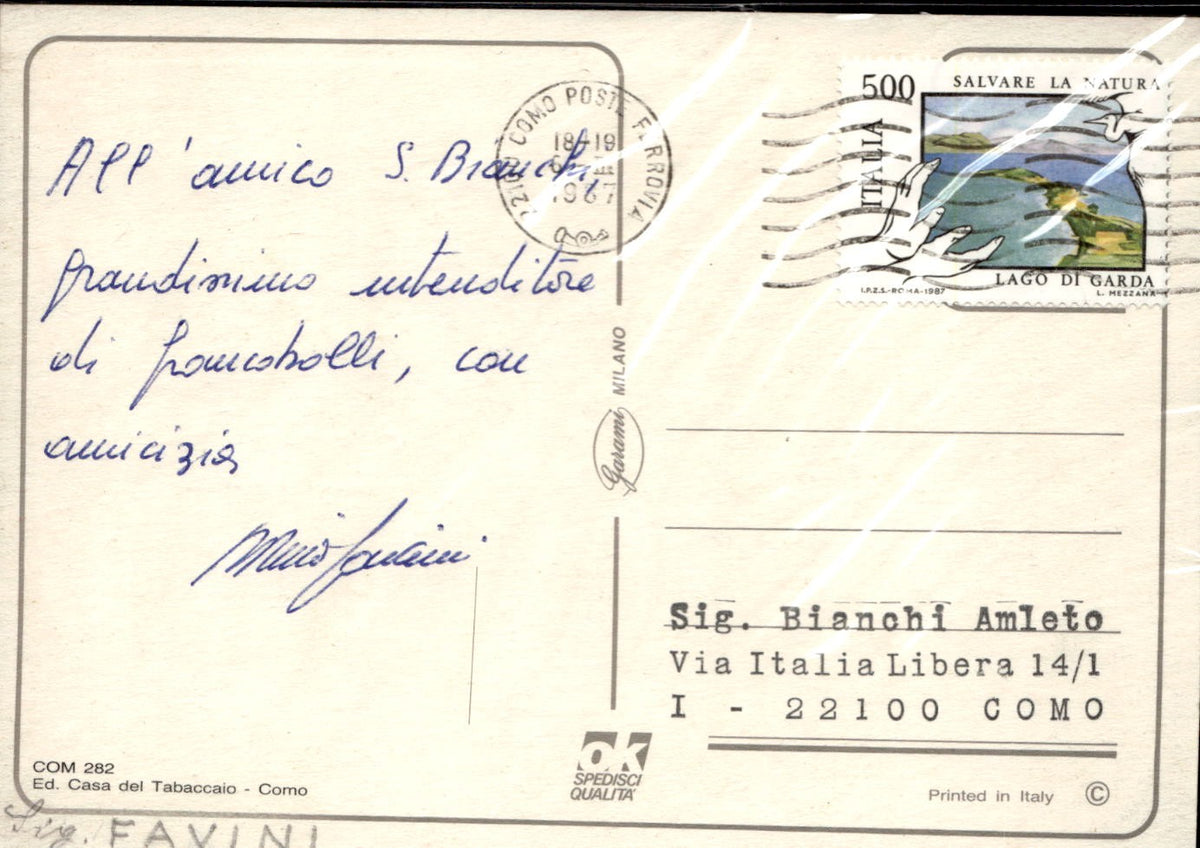 All' amico S. Bianchi,
grandissimo intenditore
di francobolli, con
amicizia
COMO POSTE FERROVIA
18-19
1987
500
SALVARE LA NATURA
ITALIA
LAGO DI GARDA
I.P.Z.S.-ROMA-1987
L. MEZZANA
Garami MILANO
Sig. Bianchi Amleto
Via Italia Libera 14/1
I - 22100 COMO
OK
SPEDISCI
QUALITA'
COM 282
Ed. Casa del Tabaccaio - Como
Printed in Italy ©
Sig. FAVINI